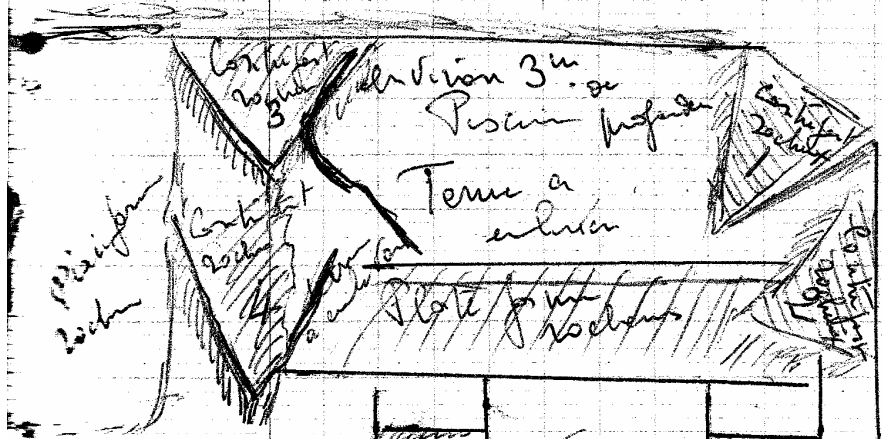 Contrefort
rocheux
3
environ 3m
de
Piscine profondeur
Contrefort
rocheux
1
Terre a
enlever
Contrefort
rocheux
4
terre
a enlever
Plate forme
rocheuse
Contrefort
rocheux
2
Plateforme
rocheuse